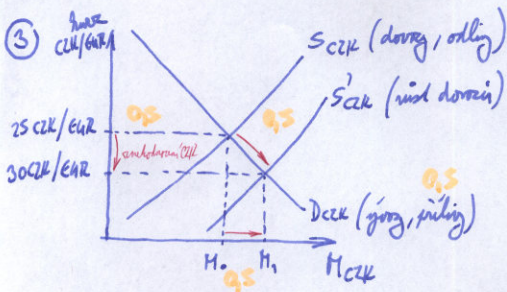 3
kurz
CZK/EUR
S CZK (dovozy, odliv)
S' CZK (růst dovozů)
0,5
0,5
25 CZK/EUR
znehodnocení CZK
30 CZK/EUR
0,5
D CZK (vývoz, příliv)
M₀
M₁
M CZK
0,5